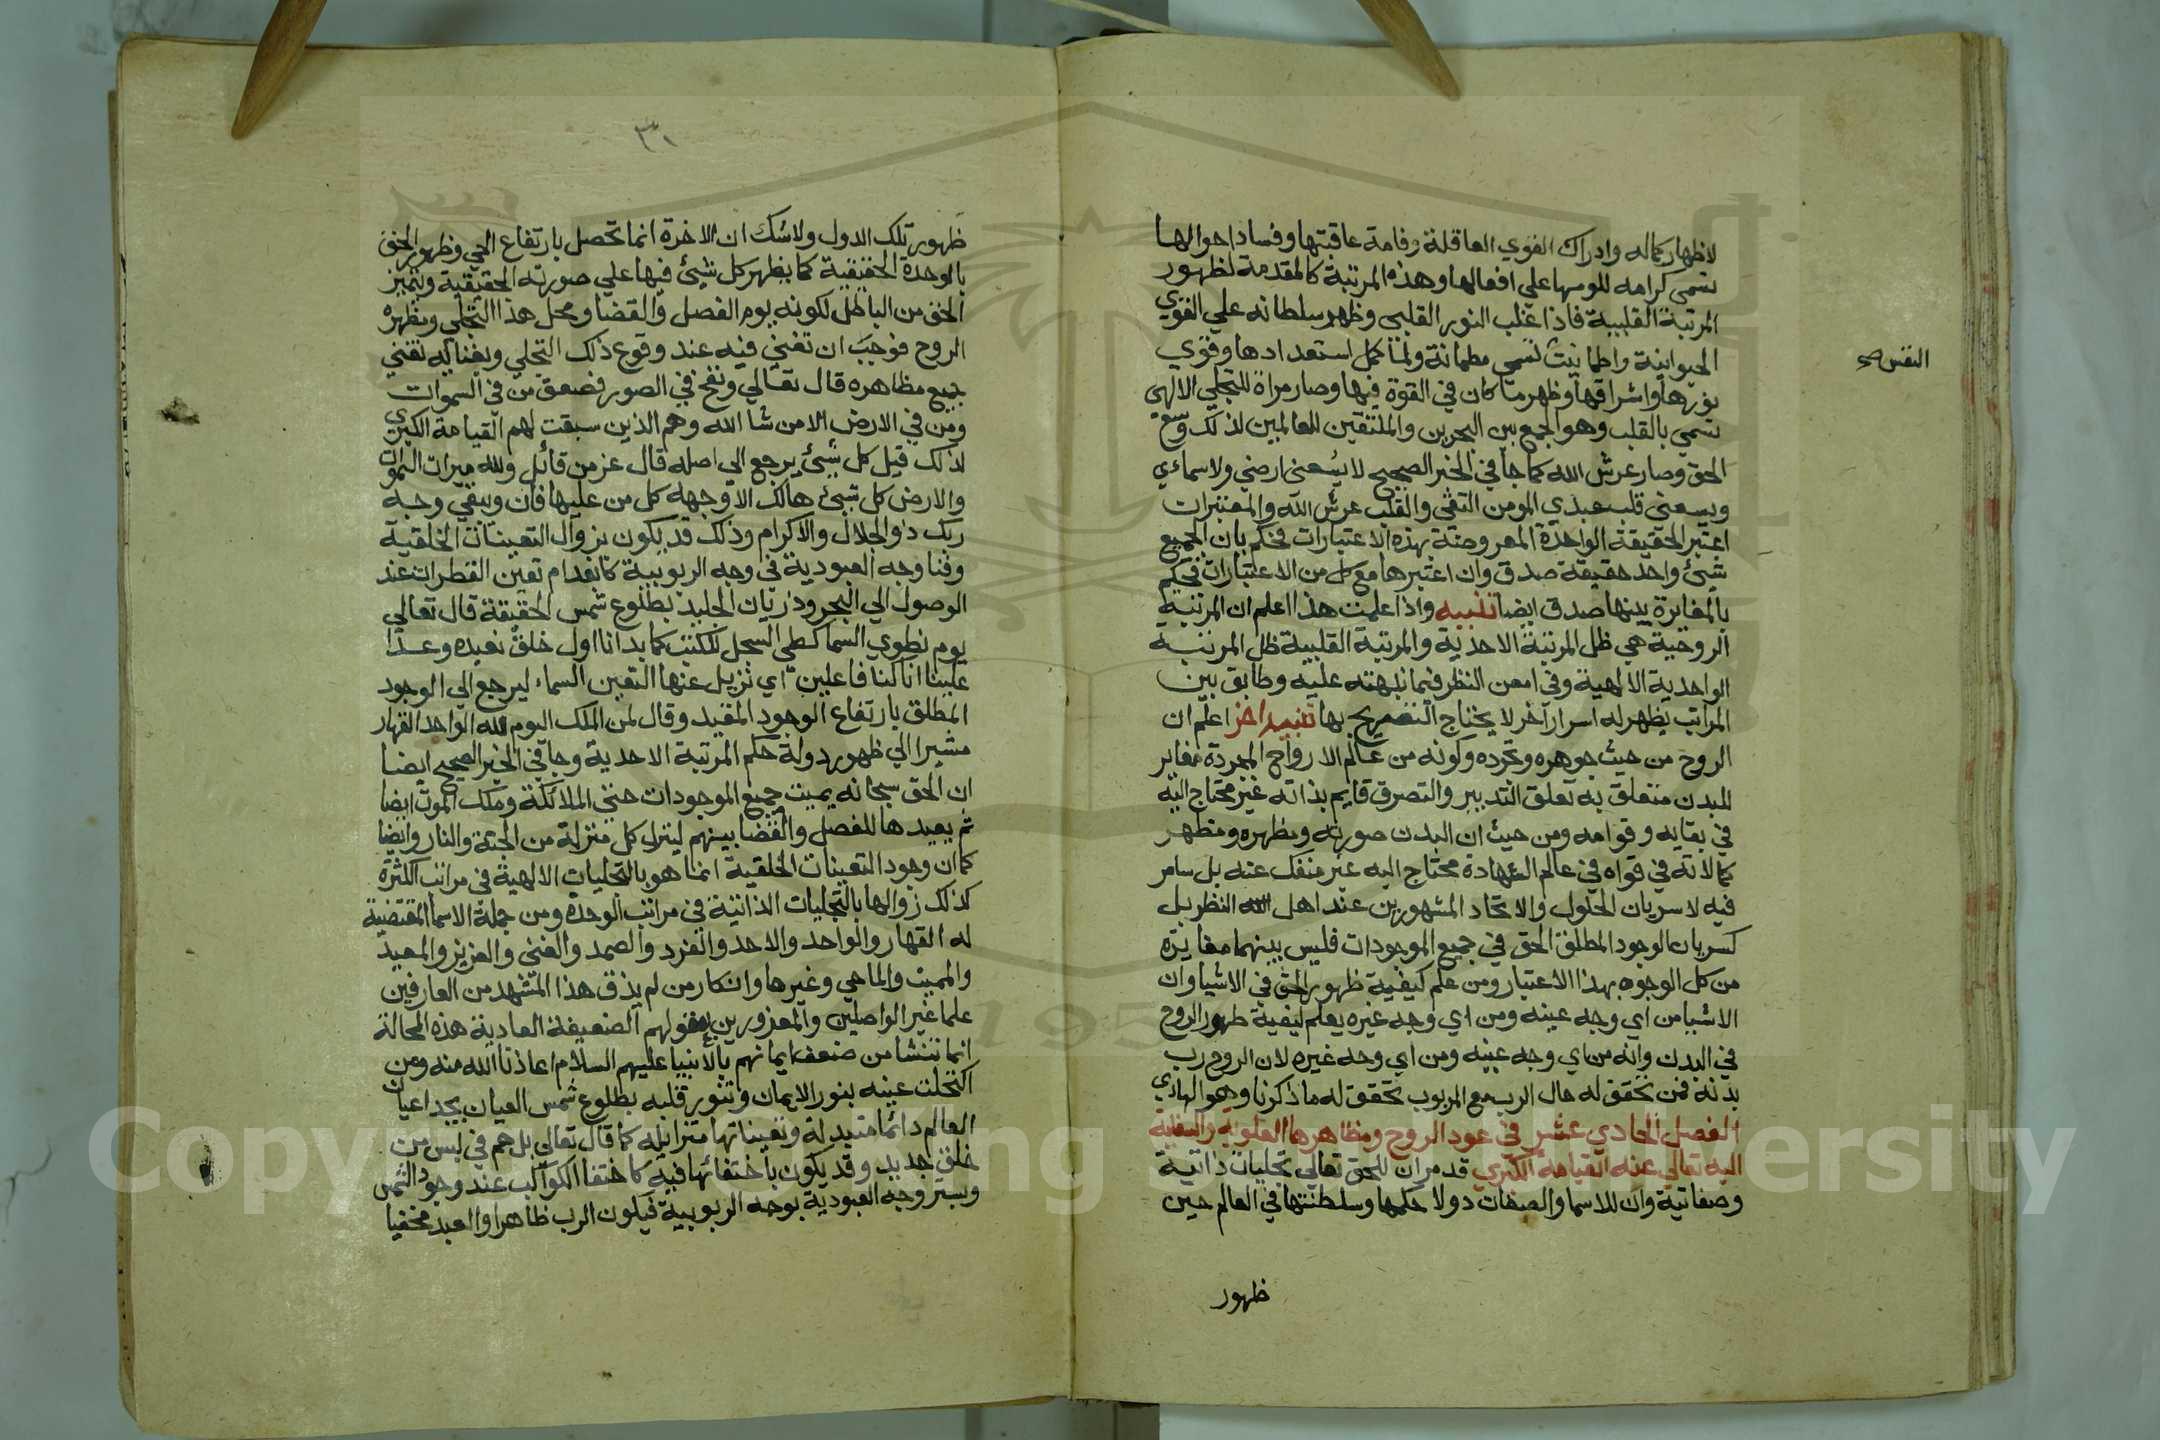 لاظهار كماله وادراك القوي العاقلة وخامة عاقبتها وفساد احوالها
تسمي لوامه للومها علي افعالها وهذه المرتبة كالمقدمة لظهور
المرتبة القلبية فاذا غلب النور القلبي وظهر سلطانه علي القوي
الحيوانية واطمانت تسمي مطمانة ولما كمل استعدادها وقوي
النفس صح
نورها واشراقها وظهر ما كان في القوة فيها وصار مراة للتجلي الالهي
تسمي بالقلب وهو الجمع بين البحرين والملتقي للعالمين لذلك وسع
الحق وصار عرش الله كما جا في الخبر الصحيح لا يسعني ارضي ولا سمائي
ويسعني قلب عبدي المومن التقي والقلب عرش الله والمعتبر ان
اعتبر الحقيقة الواحدة المعروضة بهذه الاعتبارات فحكم بان الجميع
شئ واحد حقيقة صدق وان اعتبرها مع كل من الاعتبارات فحكم
بالمغايرة بينها صدق ايضا تنبيه واذا علمت هذا اعلم ان المرتبة
الروحية هي ظل المرتبة الاحدية والمرتبة القلبية ظل المرتبة
الواحدية الالهية وفي امعن النظر فيما نبهته عليه وطابق بين
المراتب يظهر له اسرار آخر لا يحتاج التصريح بها تنبيه اخر اعلم ان
الروح من حيث جوهره وتجرده وكونه من عالم الارواح المجردة مغاير
للبدن متعلق به تعلق التدبير والتصرف قايم بذاته غير محتاج اليه
في بقايه وقوامه ومن حيث ان البدن صورته ومظهره ومظهر
كمالاته في قواه في عالم الشهادة محتاج اليه غير منفك عنه بل سامر
فيه لا سريان الحلول والاتحاد المشهورين عند اهل الله النظر بل
كسريان الوجود المطلق الحق في جميع الموجودات فليس بينهما مغايرة
من كل الوجوه بهذا الاعتبار ومن علم كيفية ظهور الحق في الاشيا وان
الاشيا من اي وجه عينه ومن اي وجه غيره يعلم كيفية ظهور الروح
في البدن وانه من اي وجه عينه ومن اي وجه غيره لان الروح رب
بدنه فمن تحقق له حال الرب مع المربوب تحقق له ما ذكرنا وهو الهادي
الفصل الحادي عشر في عود الروح ومظاهرها العلوية والسفلية
اليه تعالي عند القيامة الكبري قد مر ان للحق تعالي تجليات ذاتية
وصفاتية وان للاسما والصفات دولا حكمها وسلطنتها في العالم حين
ظهور
٣٠
ظهور تلك الدول ولا شك ان الاخرة انما تحصل بارتفاع الحجب وظهور الحق
بالوحدة الحقيقية كما يظهر كل شيئ فيها علي صورته الحقيقية ويتميز
الحق من الباطل لكونه يوم الفصل والقضا ومحل هذا التجلي ومظهره
الروح فوجب ان تفني فيه عند وقوع ذلك التجلي وبفنائه تفني
جميع مظاهره قال تعالي ونفخ في الصور فصعق من في السموات
ومن في الارض الا من شا الله وهم الذين سبقت لهم القيامة الكبري
لذلك قيل كل شيئ يرجع الي اصله قال عز من قائل ولله ميراث السموات
والارض كل شيئ هالك الا وجهه كل من عليها فان ويبقي وجه
ربك ذو الجلال والاكرام وذلك قد يكون بزوال التعينات الخلقية
وفنا وجه العبودية في وجه الربوبية كانعدام تعين القطرات عند
الوصول الي البحر وذريان الجليد بطلوع شمس الحقيقة قال تعالي
يوم نطوي السما كطي السجل للكتب كما بدانا اول خلق نعيده وعدا
علينا انا كنا فاعلين اي نزيل عنها التعين السماء ليرجع الي الوجود
المطلق بارتفاع الوجود المقيد وقال لمن الملك اليوم لله الواحد القهار
مشيرا الي ظهور دولة حكم المرتبة الاحدية وجا في الخبر الصحيح ايضا
ان الحق سبحانه يميت جميع الموجودات حتي الملائكة وملك الموت ايضا
ثم يعيدها للفصل والقضا بينهم لينزل كل منزلة من الجنة والنار وايضا
كما ان وجود التعينات الخلقية انما هو بالتجليات الالهية في مراتب الكثرة
كذلك زوالها بالتجليات الذاتية في مراتب الوحدة ومن جملة الاسما المقتضية
له القهار والواحد والاحد والفرد والصمد والغني والعزيز والمعيد
والمميت والماحي وغيرها وانكار من لم يذق هذا المشهد من العارفين
علما غير الواصلين والمغرورين بعقولهم الضعيفة العادية هذه الحالة
انما تنشا من ضعف ايمانهم بالانبيا عليهم السلام اعاذنا الله منه ومن
اكتحلت عينه بنور الايمان وتنور قلبه بطلوع شمس العيان يجد اعيان
العالم دائما متبدلة وتعيناتها متزايلة كما قال تعالي بل هم في لبس من
خلق جديد وقد يكون باختفائها فيه كاختفا الكواكب عند وجود الشمس
ويستر وجه العبودية بوجه الربوبية فيكون الرب ظاهرا والعبد مخفيا
Copyright © King Saud University